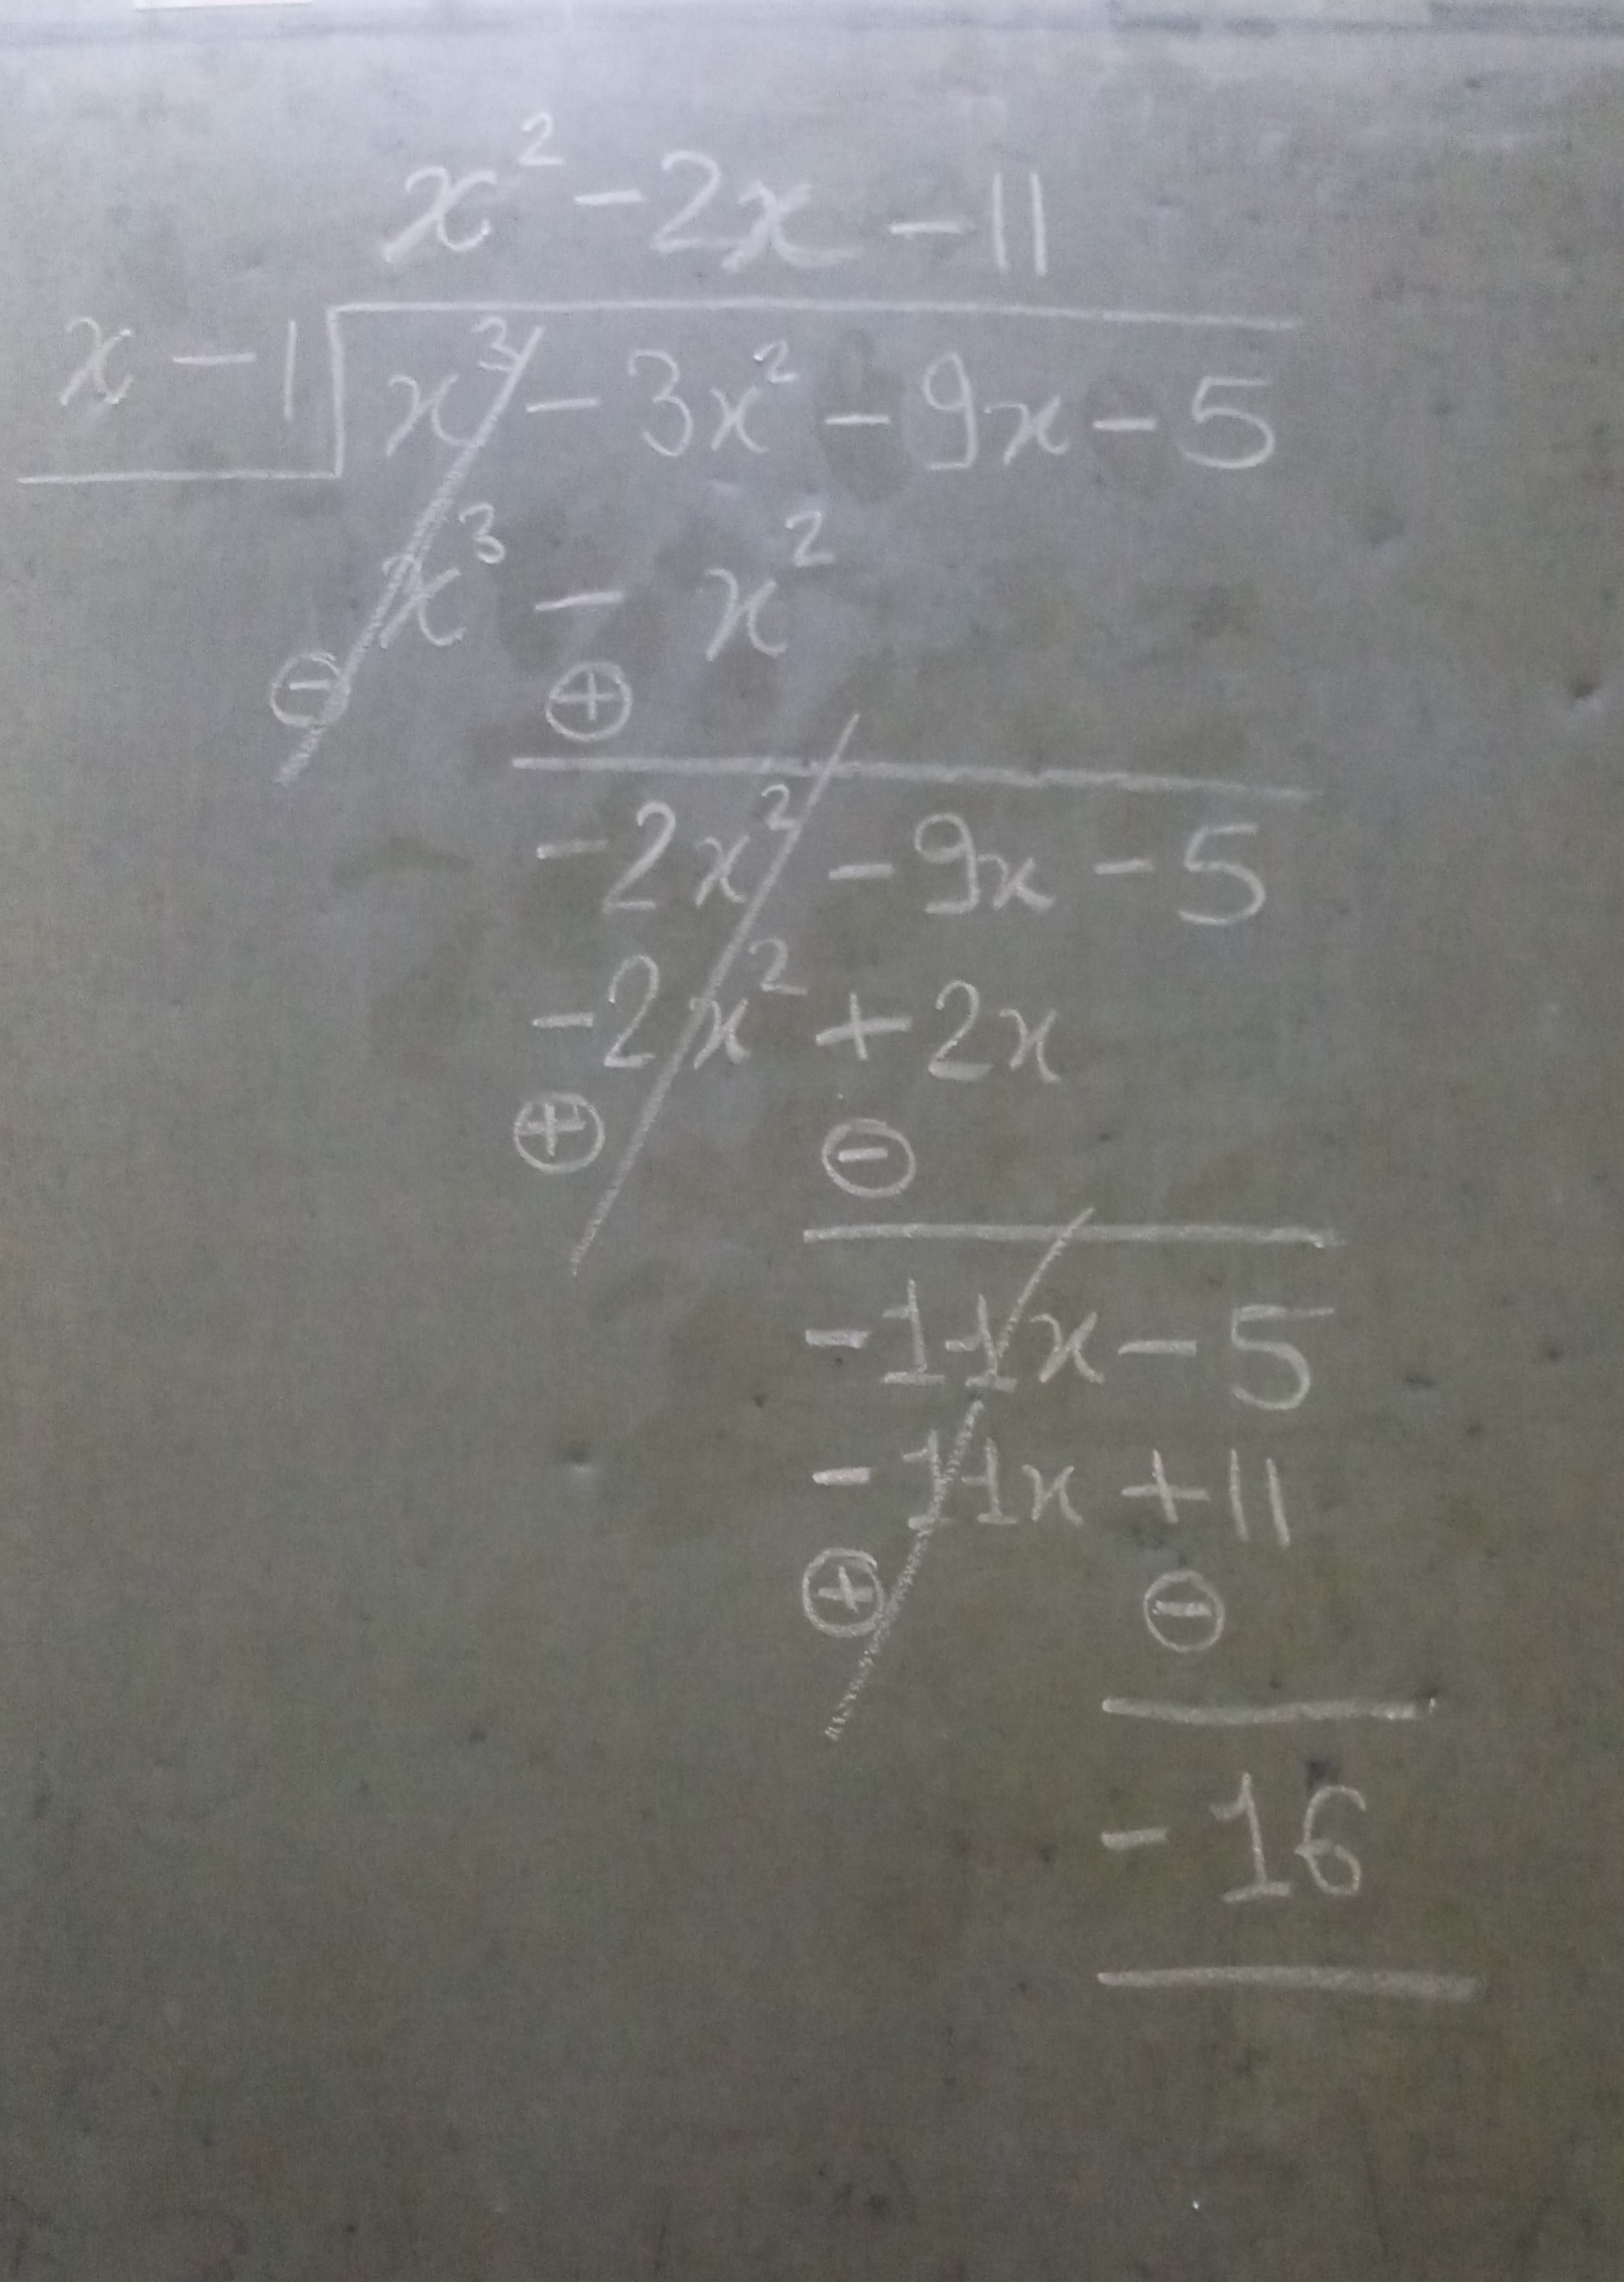 x² - 2x - 11
x - 1 x³ - 3x² - 9x - 5
x³ - x²
⊖ ⊕
-2x² - 9x - 5
-2x² + 2x
⊕ ⊖
-11x - 5
-11x + 11
⊕ ⊖
-16